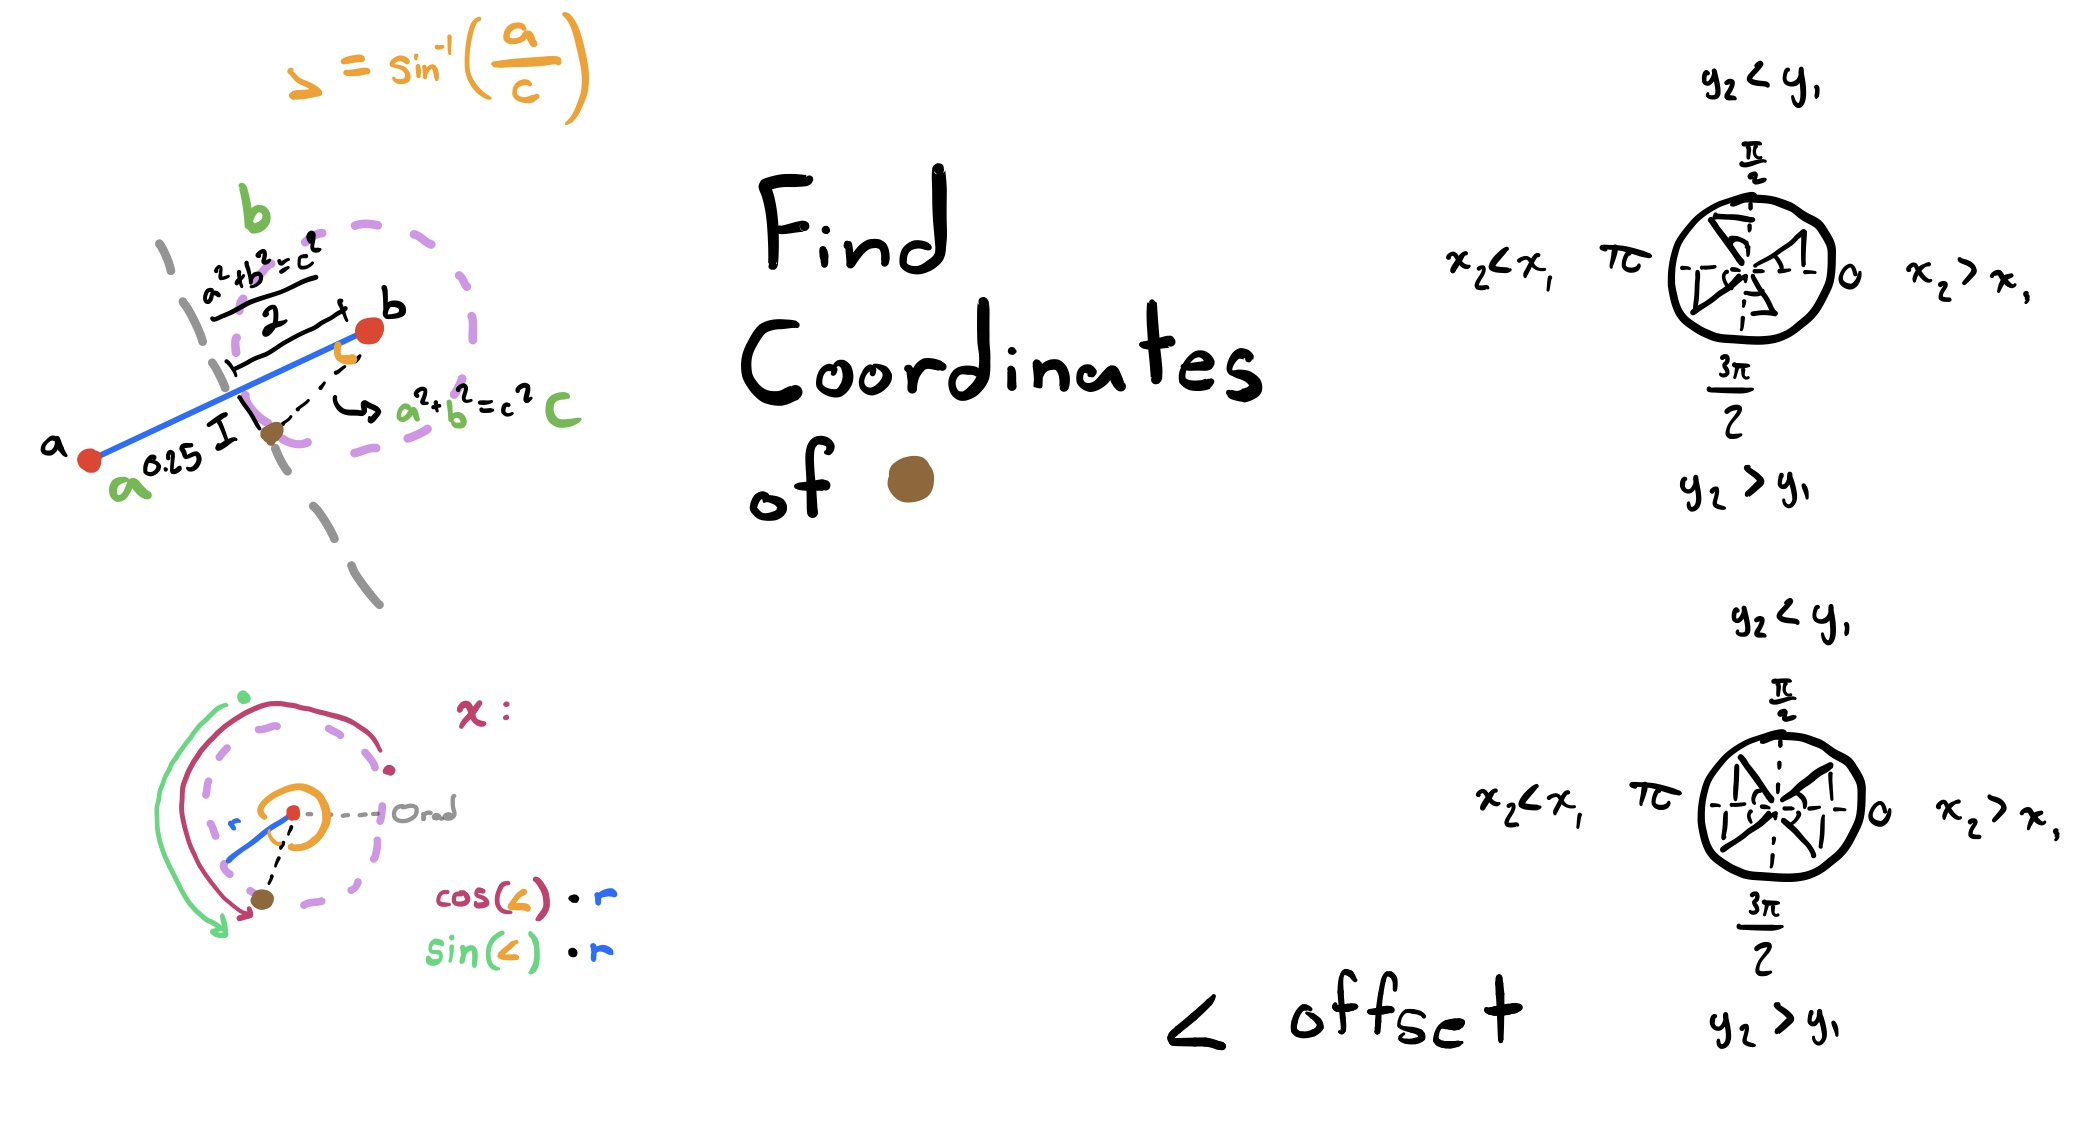 ∠ = sin⁻¹(a/c)
b
a²+b²=c²
2
b
a²+b²=c² c
a
a 0.25
Find
Coordinates
of
y₂ < y₁
π/2
x₂<x₁ π 0 x₂ > x₁
3π/2
y₂ > y₁
x :
r
0rad
cos(∠) · r
sin(∠) · r
y₂ < y₁
π/2
x₂<x₁ π 0 x₂ > x₁
3π/2
y₂ > y₁
∠ offset